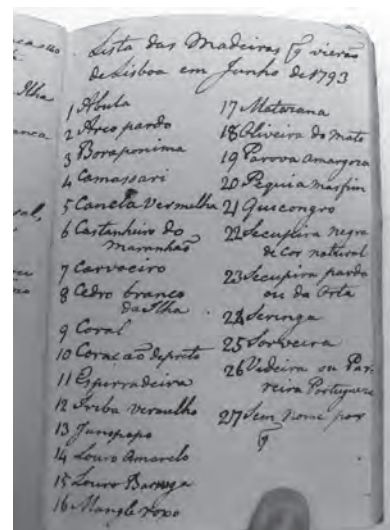 Lista das Madeiras q̃ vierão
de Lisboa em Junho de 1793
1 Abula
2 Arco pardo
3 Boraponima
4 Camassari
5 Canela Vermelha
6 Castanheiro do
Maranhaõ
7 Carvoeiro
8 Cedro branco
da Ilha
9 Coral
10 Coracaõ de preto
11 Espirradeira
12 Iriba vermelho
13 Junepapo
14 Louro Amarelo
15 Louro
16 Mangle roxo
17 Matariana
18 Oliveira do Mato
19 Parova Amargoza
20 Pequia Marfim
21 Quicongro
22 Secupira negra
de Cor natural
23 Secupira parda
ou da Orta
24 Seringa
25 Sorveira
26 Videira ou Par
reira Portugueza
27 Sem nome por
q̃
Ilha